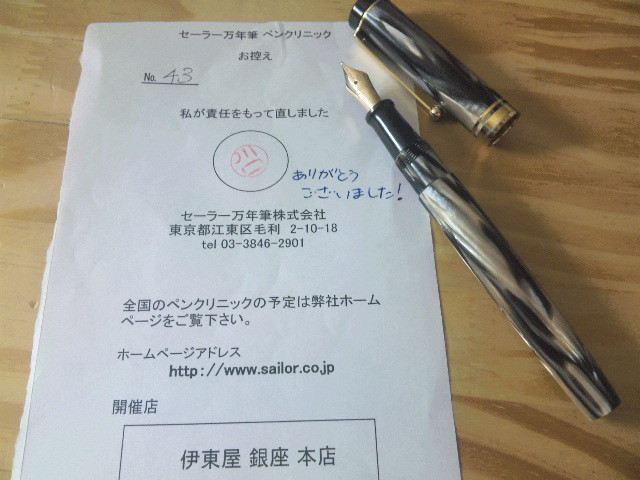 セーラー万年筆 ペンクリニック
お控え
No. 43
私が責任をもって直しました
ありがとう
ございました!
セーラー万年筆株式会社
東京都江東区毛利 2-10-18
tel 03-3846-2901
全国のペンクリニックの予定は弊社ホーム
ページをご覧下さい。
ホームページアドレス
http://www.sailor.co.jp
開催店
伊東屋 銀座 本店